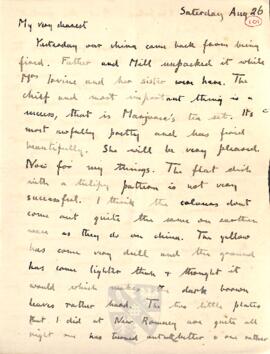 Saturday Aug 26
101
My very dearest
Yesterday our china came back from being
fired. Father and Mill unpacked it while
Mrs Irvine and her sister were here. The
chief and most important thing is a
success, that is Marjorie's tea set. It's
most awfully pretty and has fired
beautifully. She will be very pleased.
Now for my things. The flat dish
with a tulipy pattern is not very
successful. I think the colours don't
come out quite the same on earthen
ware as they do on china. The yellow
has come very dull and the ground
has come lighter than I thought it
would which makes the dark brown
leaves rather hard. The two little plates
that I did at New Romney are quite all
right one has turned out better